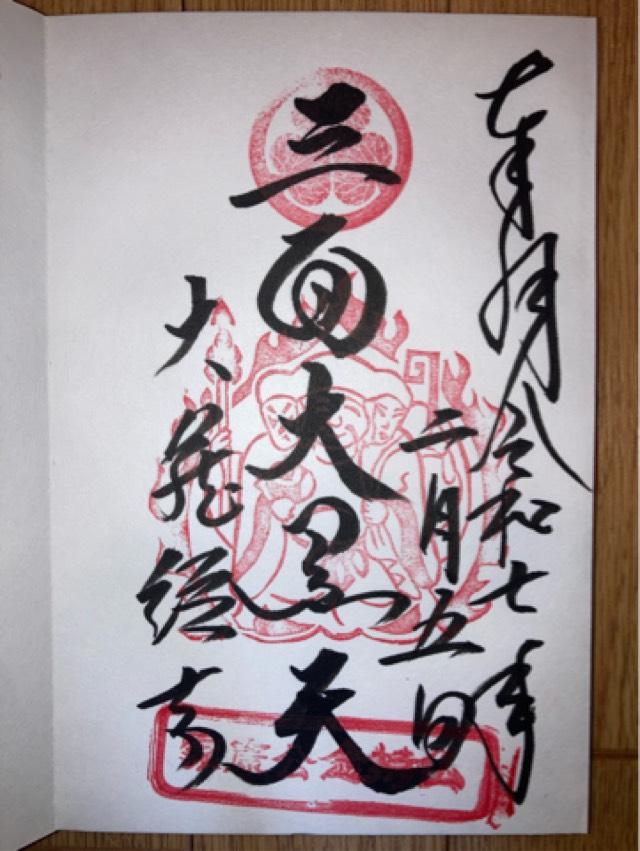 奉拝
令和七年
二月五日
三面大黒天
大蔵経寺